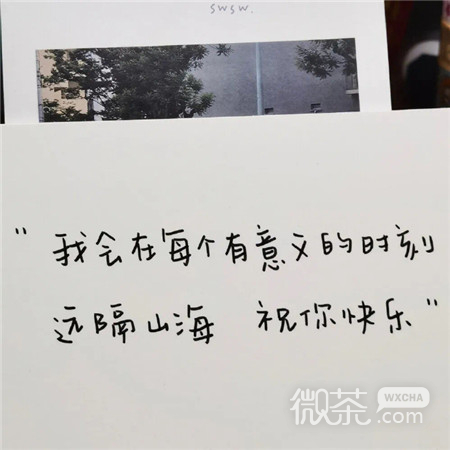 swsw.
"我会在每个有意义的时刻
远隔山海 祝你快乐"
微茶 WXCHA .com